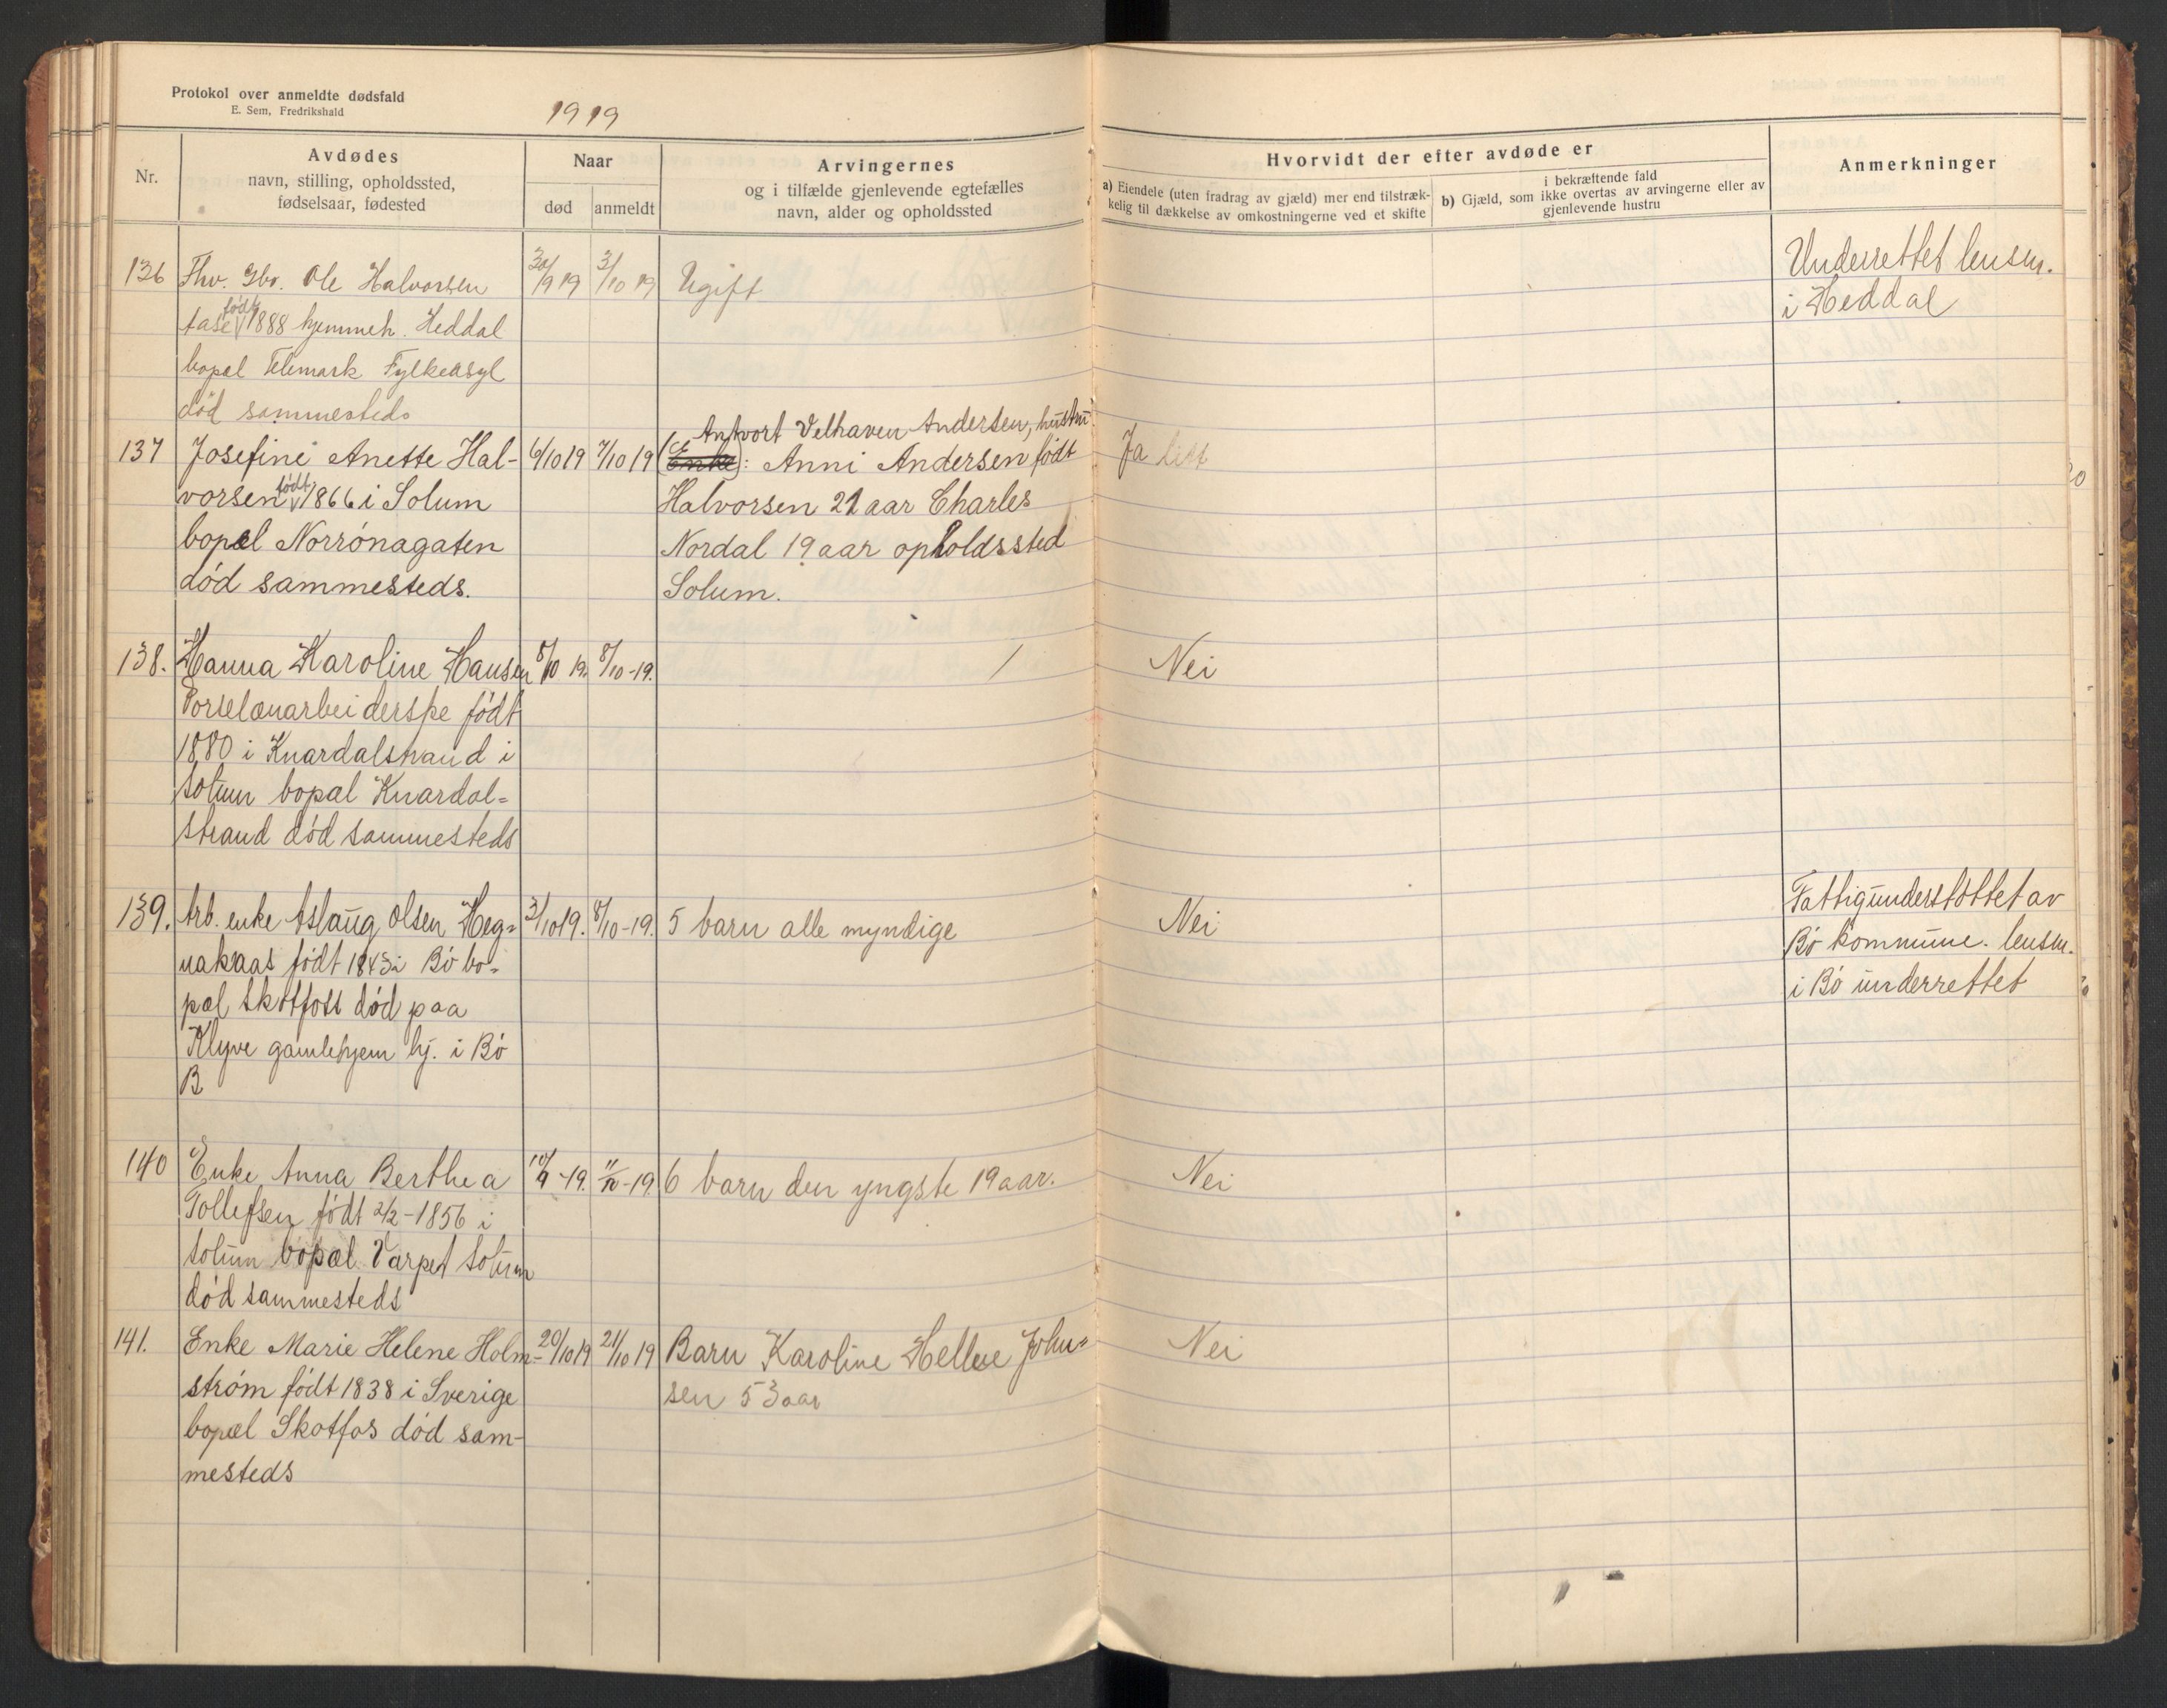 Protokol over anmeldte dødsfald
E. Sem, Fredrikshald
1919
Nr.
Avdødes
navn, stilling, opholdssted,
fødselsaar, fødested
Naar
død
anmeldt
Arvingernes
og i tilfælde gjenlevende egtefælles
navn, alder og opholdssted
Hvorvidt der efter avdøde er
a) Eiendele (uten fradrag av gjæld) mer end tilstræk-
kelig til dækkelse av omkostningerne ved et skifte
i bekræftende fald
b) Gjæld, som ikke overtas av arvingerne eller av
gjenlevende hustru
Anmerkninger
136 Fhv. Gbr. Ole Halvorsen 30/9 19 3/10 19 Ugift
Aase født 1888 hjemmeh. Heddal
bopæl Telemark Fylkeasyl
død sammesteds
Underrettet lensm.
i Heddal
137 Josefine Anette Hal- 6/10 19 7/10 19
vorsen født 1866 i Solum
bopæl Norrønagaten
død sammesteds.
Velhaven Andersen, hustru
(Enke): Anni Andersen født
Halvorsen 21 aar Charles
Nordal 19 aar opholdssted
Solum.
Ja litt
138. Hanna Karoline Hansen 8/10 19. 8/10-19. / Nei
Porselænarbeiderske født
1880 i Knardalstrand i
Solum bopæl Knardal=
strand død sammesteds
139. Arb. enke Aslaug Olsen Heg= 3/10 19. 8/10-19. 5 barn alle myndige Nei
nakaas født 1843 i Bø bo=
pæl Skotfoss død paa
Klyve gamlehjem hj. i Bø
B
Fattigunderstøttet av
Bø kommune. lensm.
i Bø underrettet
140 Enke Anna Berthea 10/9-19. 11/10-19. 6 barn den yngste 19 aar. Nei
Tollefsen født 2/2-1856 i
Solum bopæl Varpet Solum
død sammesteds
141. Enke Marie Helene Holm- 20/10 19 21/10 19 Barn Karoline Hellene John= Nei
strøm født 1838 i Sverige
bopæl Skotfos død sam-
mesteds
sen 53 aar